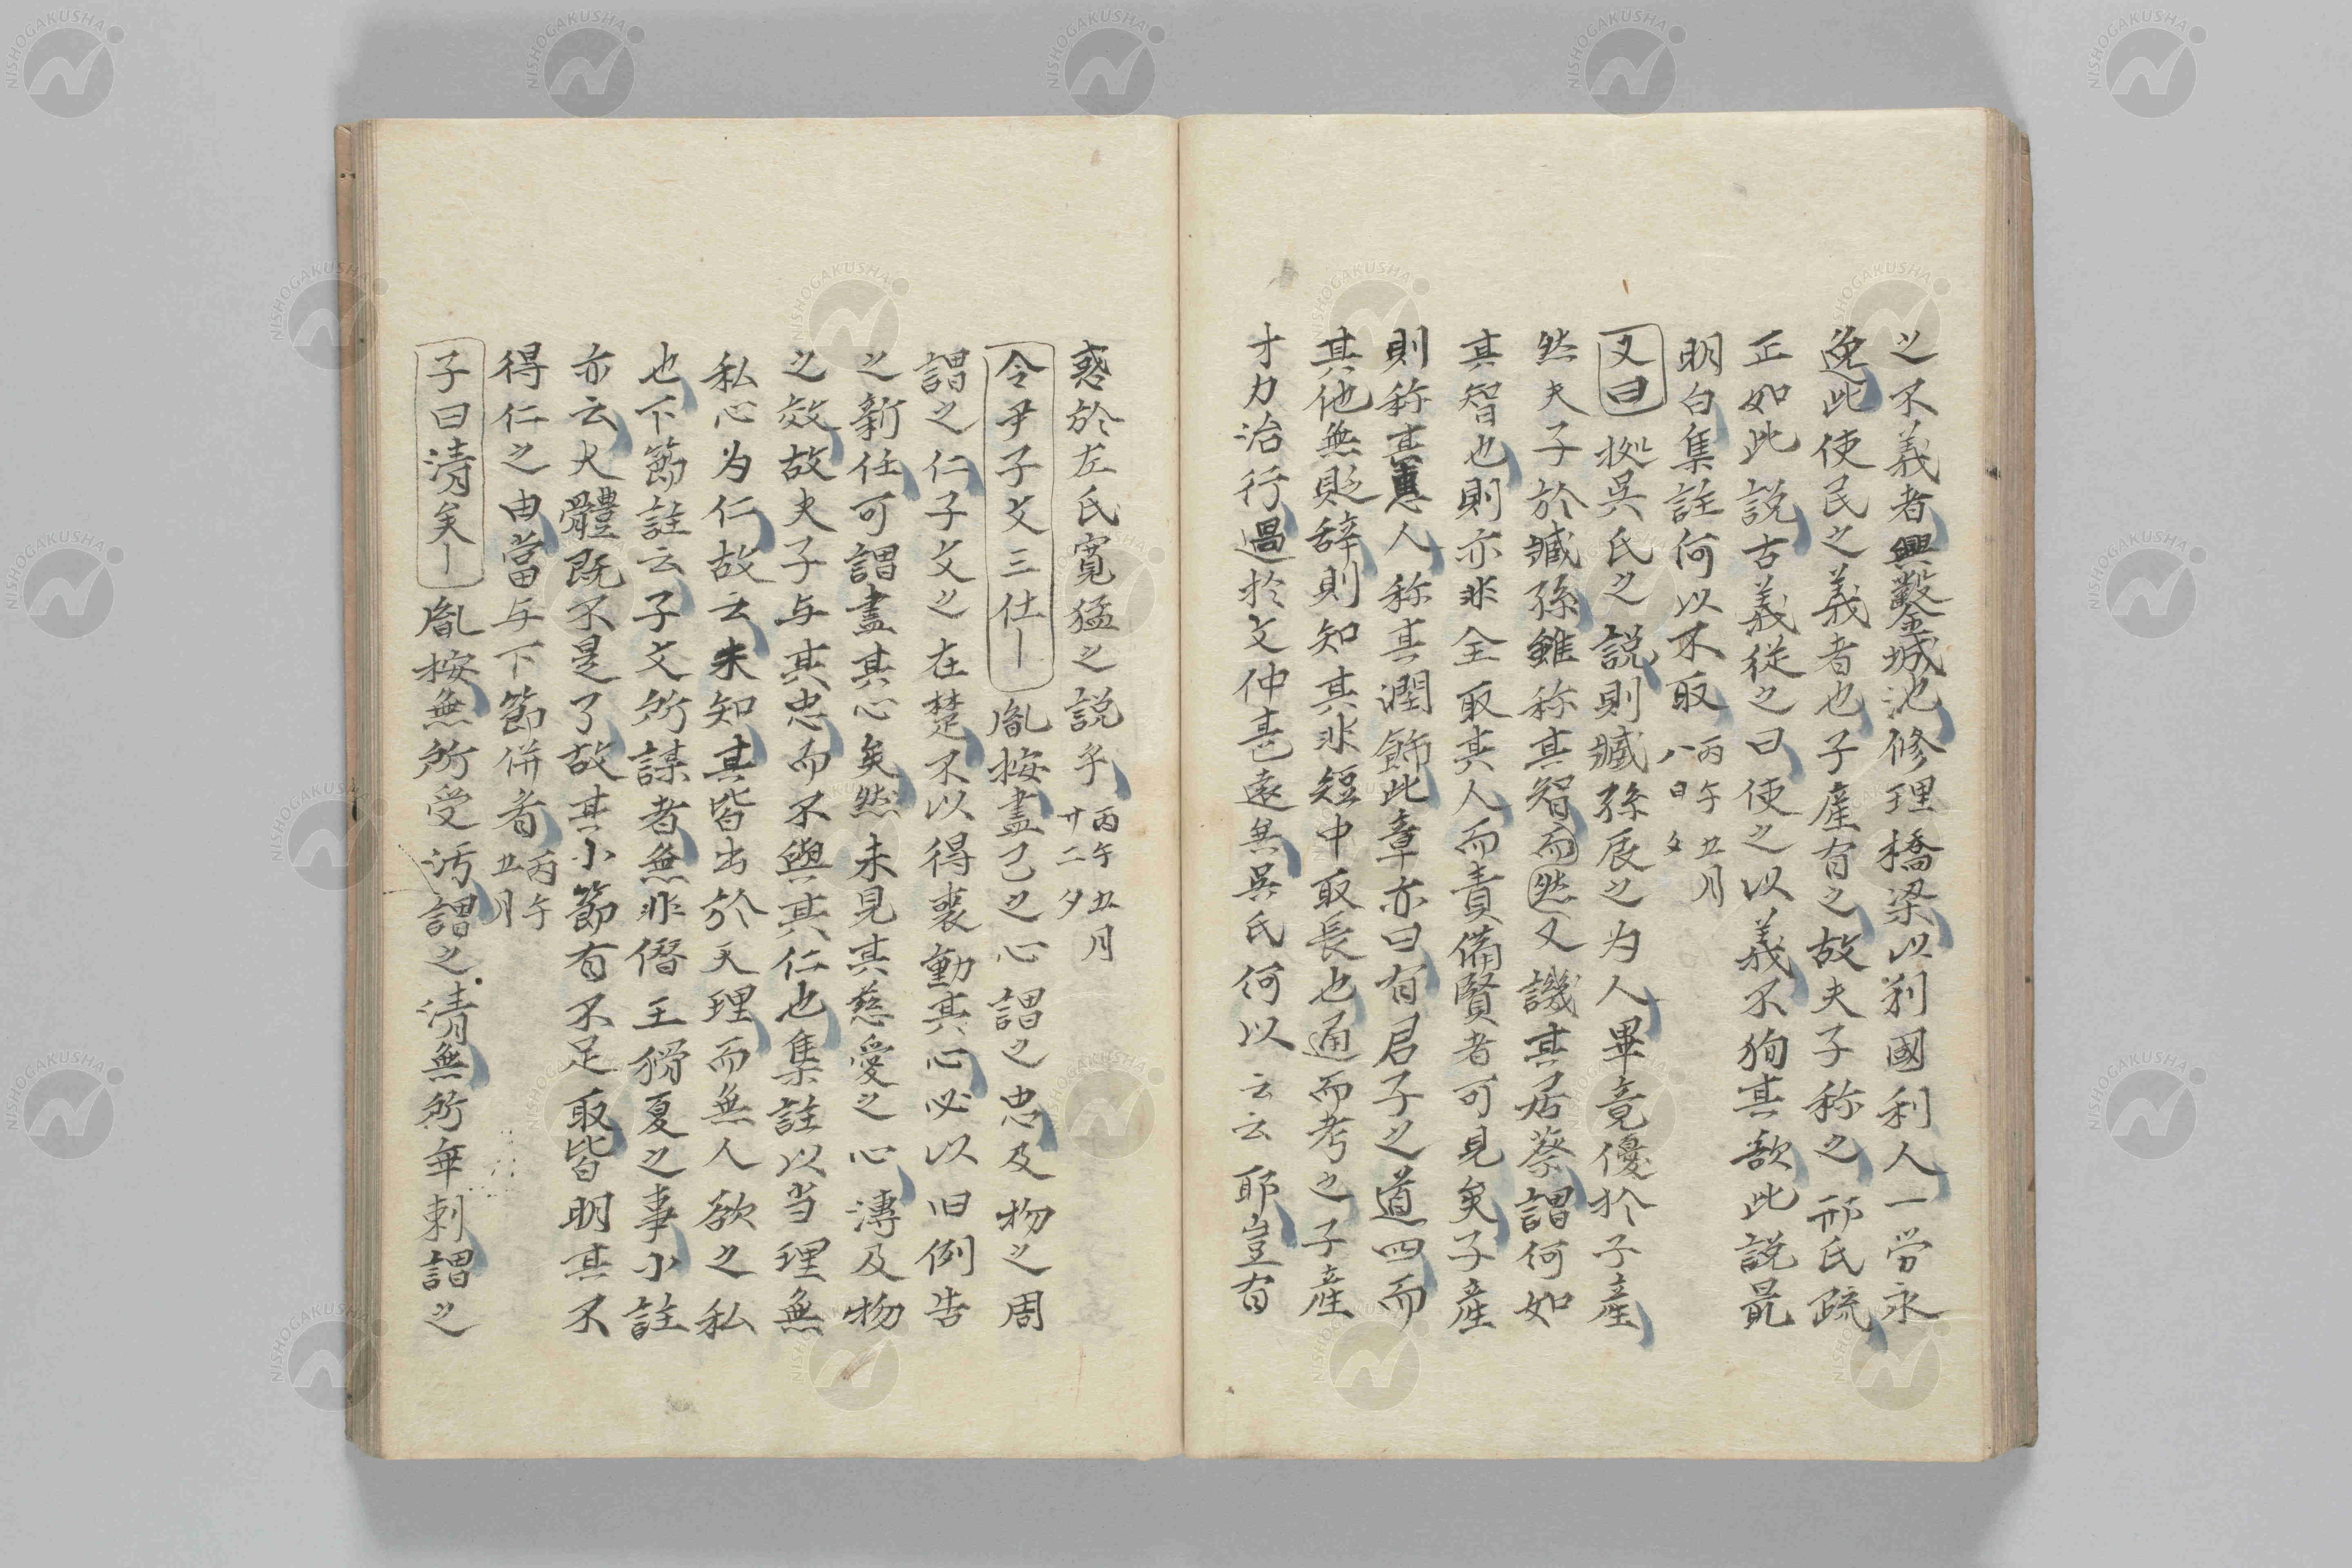 之不義者興鑿城池修理橋梁以利國利人一労永
逸此使民之義者也子産有之故夫子称之邢氏疏
正如此説古義従之曰使之以義不狥其欲此説最
明白集註何以不取丙午五月八日夕
又曰拠呉氏之説則臧孫辰之为人畢竟優於子産
然夫子於臧孫雖称其智而然又譏其居蔡謂何如
其智也則亦非全取其人而責備賢者可見矣子産
則称其惠人称其潤飾此章亦曰有君子之道四而
其他無貶辞則知其非短中取長也通而考之子産
才力治行過於文仲甚遠無呉氏何以云云耶豈有
惑於左氏寛猛之説乎丙午五月廿二夕
令尹子文三仕｜胤按盡己之心謂之忠及物之周
謂之仁子文之在楚不以得喪動其心必以旧例告
之新任可謂盡其心矣然未見其慈愛之心溥及物
之效故夫子与其忠而不與其仁也集註以当理無
私心为仁故云未知其皆出於天理而無人欲之私
也下節註云子文所謀者無非僭王猾夏之事小註
亦云大體既不是了故其小節有不足取皆明其不
得仁之由當与下節併看丙午五月
子曰清矣｜胤按無所受汚謂之清無所乖剌謂之